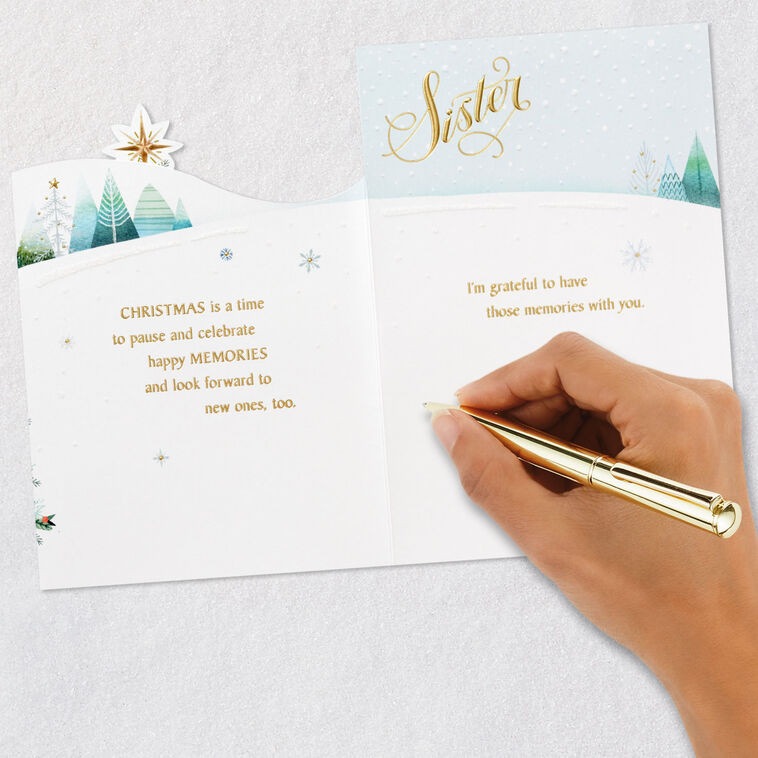 CHRISTMAS is a time
to pause and celebrate
happy MEMORIES
and look forward to
new ones, too.
Sister
I'm grateful to have
those memories with you.